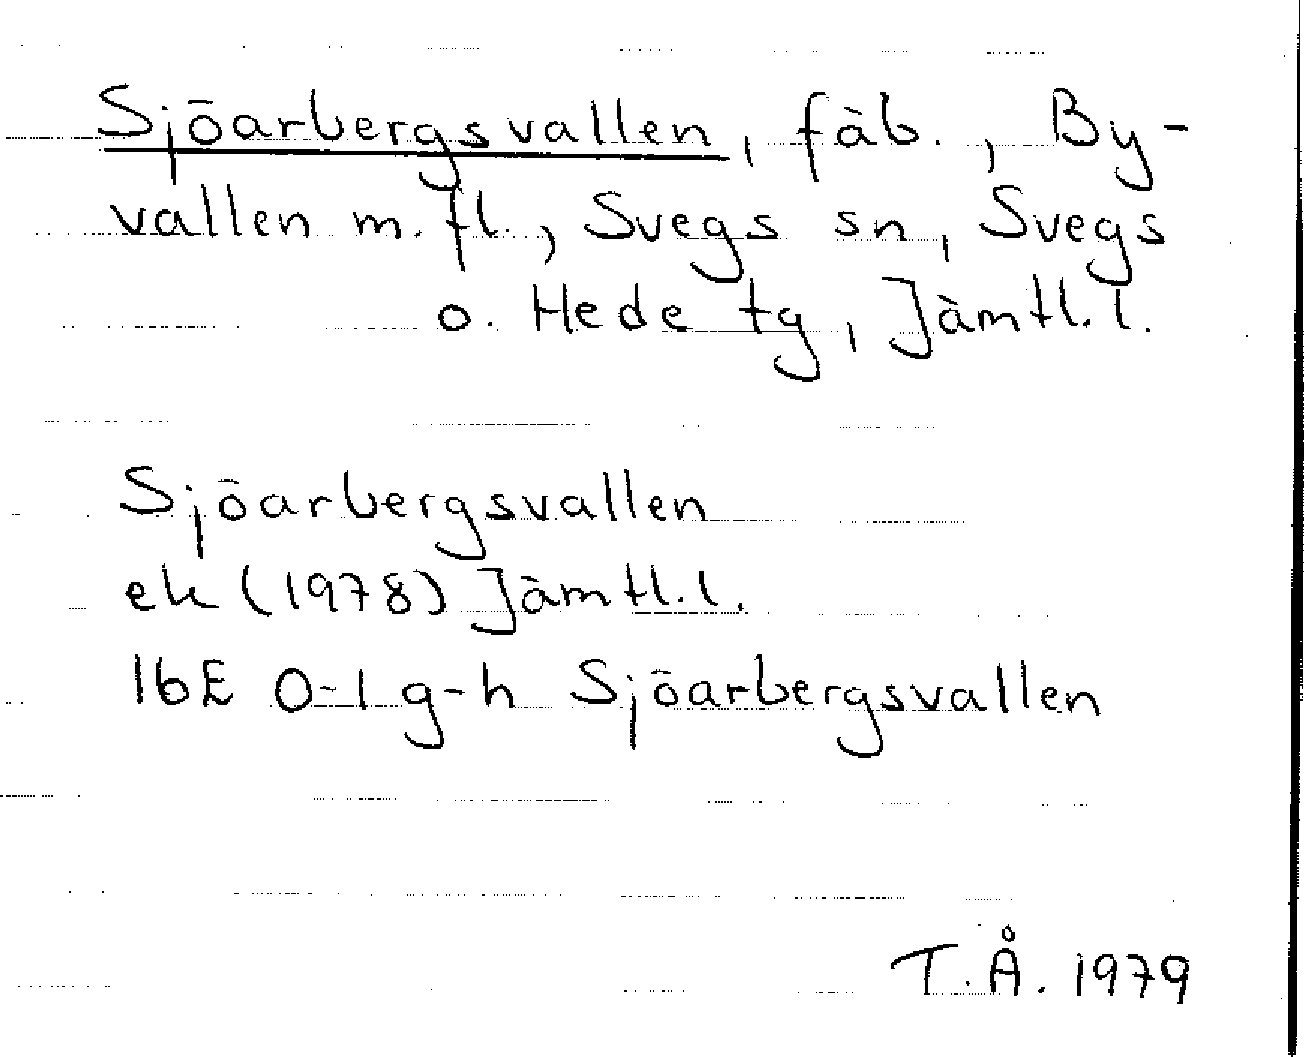 Sjöarbergsvallen, fäb., By-
vallen m. fl., Svegs sn, Svegs
o. Hede tg, Jämtl. l.
Sjöarbergsvallen
ek (1978) Jämtl. l.
16E 0-1 g-h Sjöarbergsvallen
T. Å. 1979